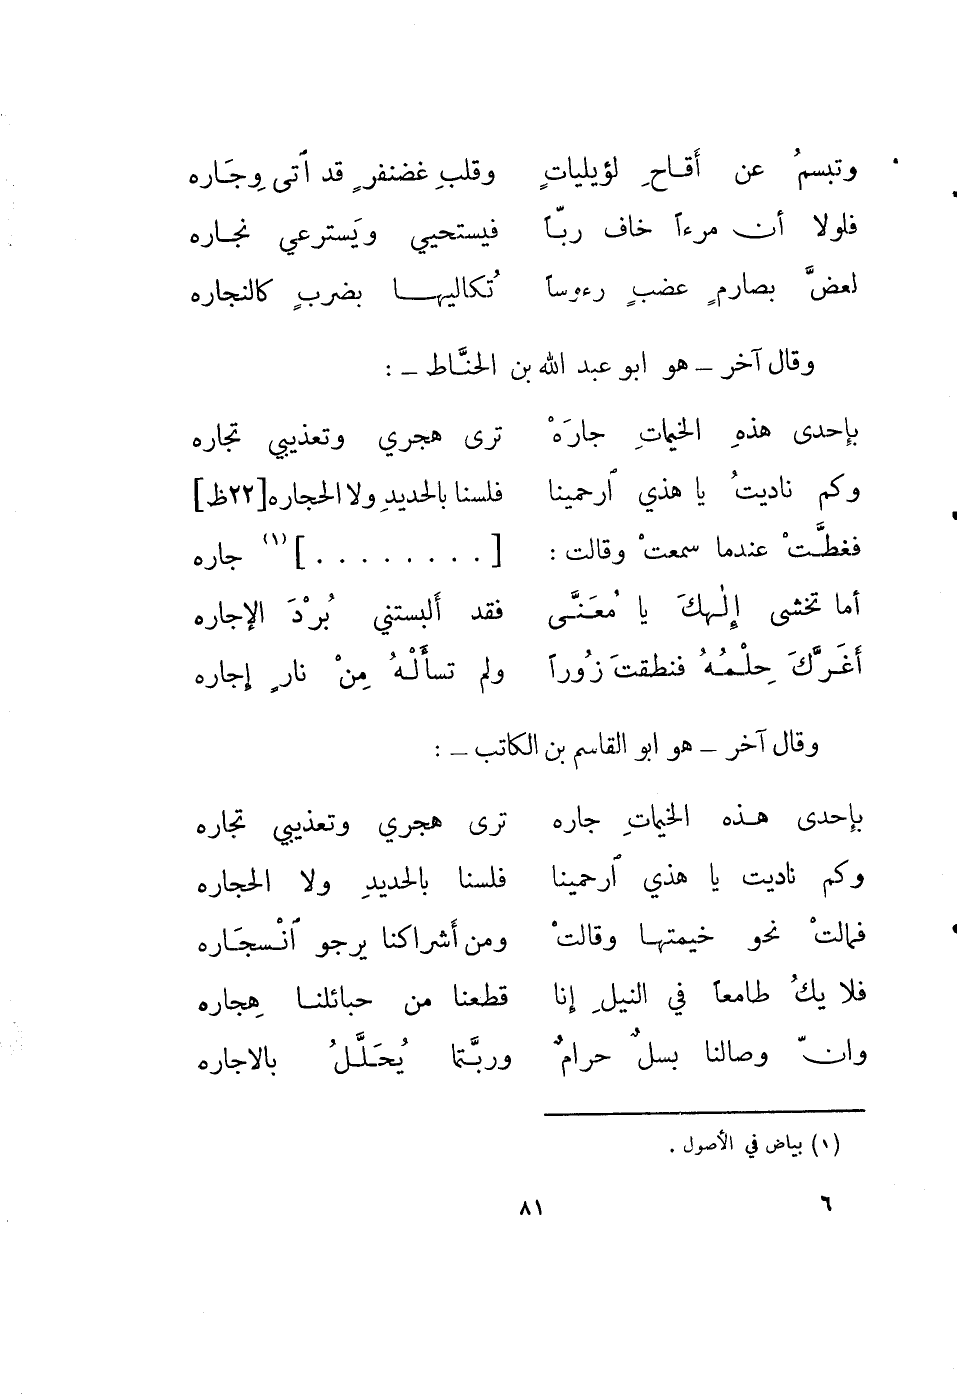 وتبسمُ عن أقاحِ لؤيلياتٍ وقلبِ غضنفرٍ قد أتى وِجَاره
فلولا أن مرءاً خاف ربّاً فيستحيي ويَسترعي نجاره
لعضَّ بصارمٍ عضبٍ رءوساً تُكاليها بضربٍ كالنجاره
وقال آخر – هو ابو عبد الله بن الحنَّاط – :
بإحدى هذهِ الخيماتِ جارَهْ ترى هجري وتعذيبي تجاره
وكم ناديتُ يا هذي ٱرحمينا فلسنا بالحديدِ ولا الحجاره [٢٢ظ]
فغطَّتْ عندما سمعتْ وقالت : [ . . . . . . . . ] (١) جاره
أما تخشى إِلٰهكَ يا مُعَنَّى فقد ألبستني بُرْدَ الإجاره
أغَرَّكَ حِلْمُهُ فنطقتَ زُوراً ولم تسألْهُ مِنْ نارٍ إجاره
وقال آخر – هو ابو القاسم بن الكاتب – :
بإحدى هذه الخيماتِ جاره ترى هجري وتعذيبي تجاره
وكم ناديت يا هذي ٱرحمينا فلسنا بالحديدِ ولا الحجاره
فمالتْ نحو خيمتها وقالتْ ومن أشراكنا يرجو ٱنْسجَاره
فلا يكُ طامعاً في النيلِ إنا قطعنا من حبائلنا هِجاره
وانّ وصالنا بسلٌ حرامٌ وربَّتما يُحَلَّلُ بالاجاره
(١) بياض في الأصول .
٨١ ٦